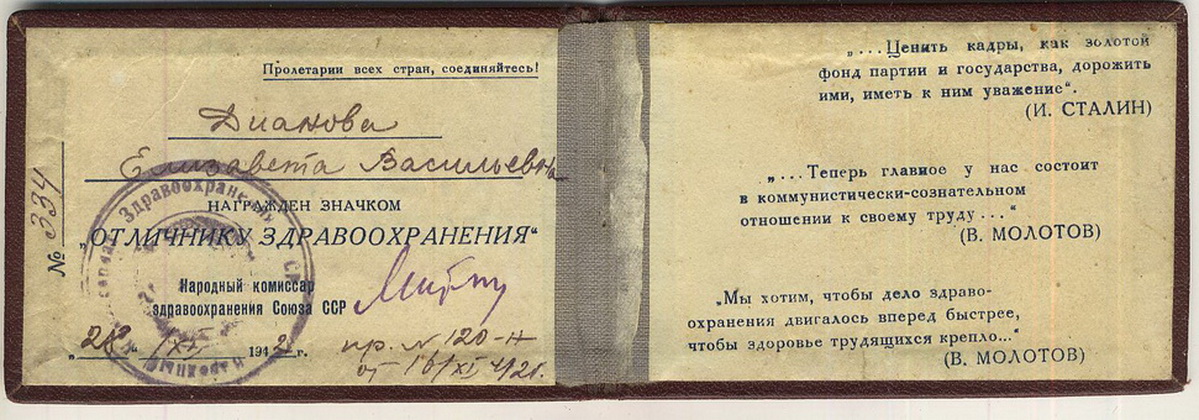 Пролетарии всех стран, соединяйтесь!
Дианова
Елизавета Васильевна
НАГРАЖДЕН ЗНАЧКОМ
„ОТЛИЧНИКУ ЗДРАВООХРАНЕНИЯ“
Народный комиссар
здравоохранения Союза ССР
„28“ /XI 1942 г.
пр. N 120-н
от 16/XI 42г.
№ 334
Здравоохранения
„...Ценить кадры, как золотой
фонд партии и государства, дорожить
ими, иметь к ним уважение“.
(И. СТАЛИН)
„...Теперь главное у нас состоит
в коммунистически-сознательном
отношении к своему труду...“
(В. МОЛОТОВ)
„Мы хотим, чтобы дело здраво-
охранения двигалось вперед быстрее,
чтобы здоровье трудящихся крепло...“
(В. МОЛОТОВ)